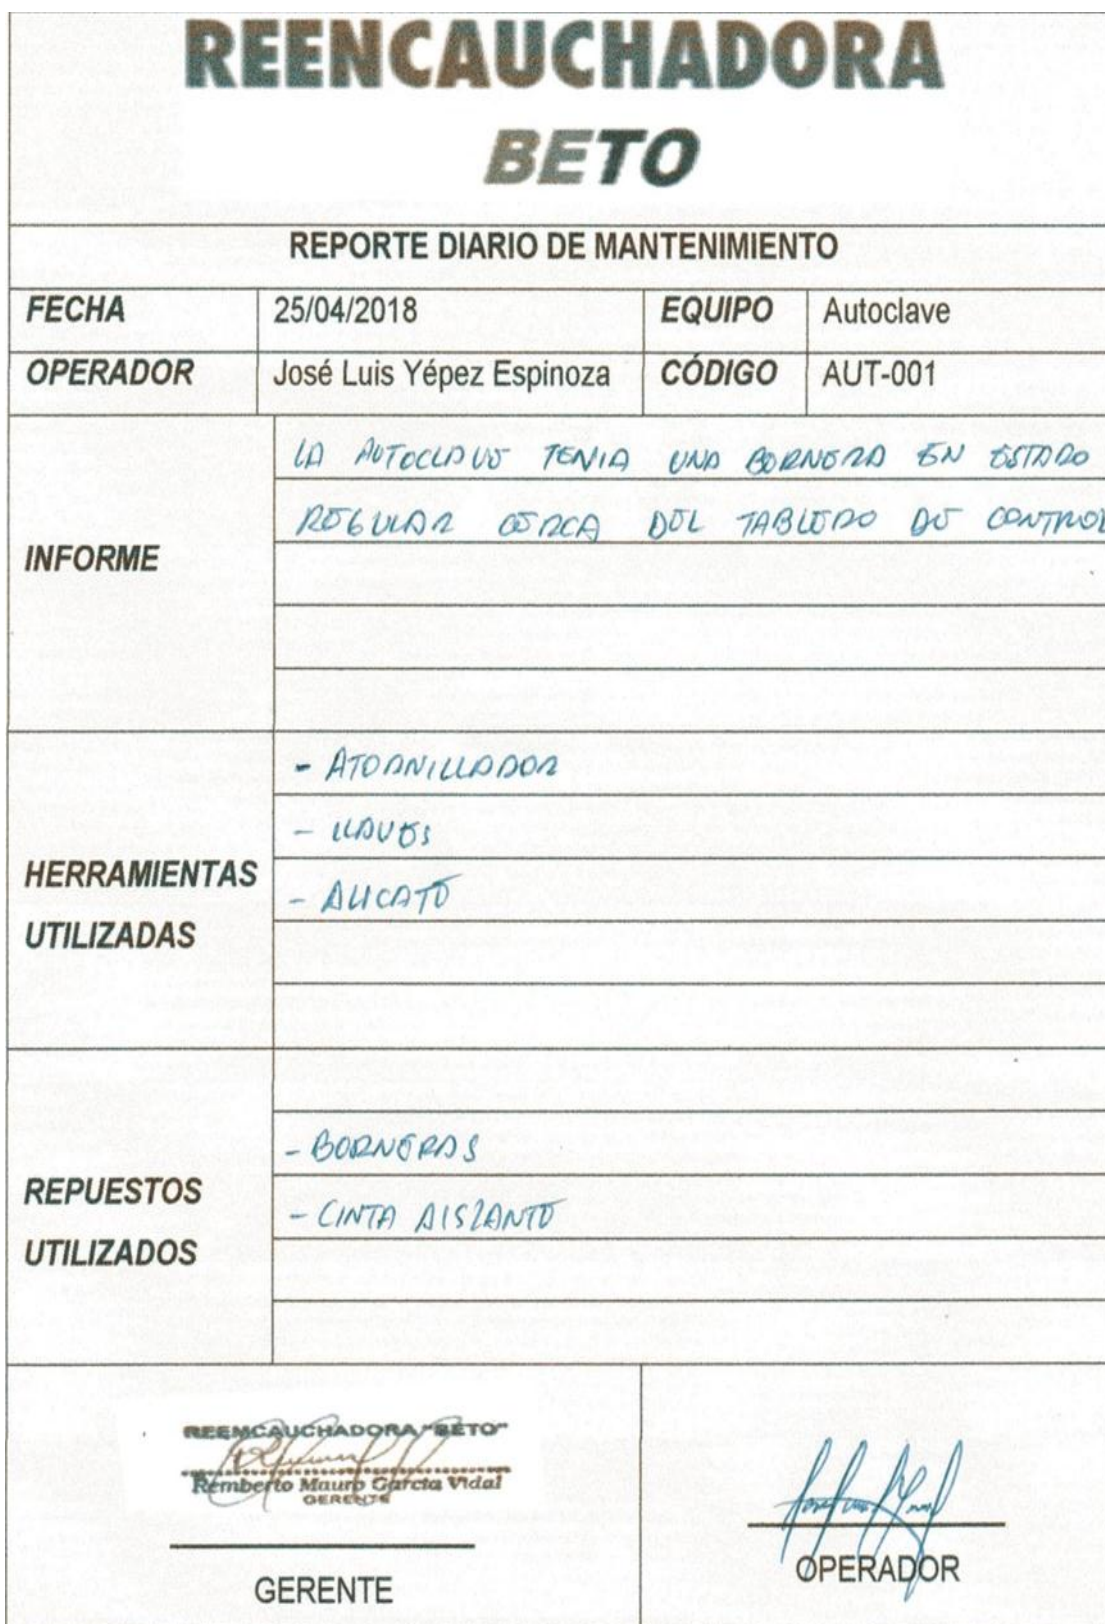 REENCAUCHADORA
BETO
REPORTE DIARIO DE MANTENIMIENTO
FECHA 25/04/2018 EQUIPO Autoclave
OPERADOR José Luis Yépez Espinoza CÓDIGO AUT-001
INFORME
LA AUTOCLAVE TENIA UNA BORNERA EN ESTADO
REGULAR CERCA DEL TABLERO DE CONTROL
HERRAMIENTAS
UTILIZADAS
- ATORNILLADOR
- LLAVES
- ALICATE
REPUESTOS
UTILIZADOS
- BORNERAS
- CINTA AISLANTE
REENCAUCHADORA "BETO"
Remberto Mauro García Vidal
GERENTE
GERENTE
OPERADOR